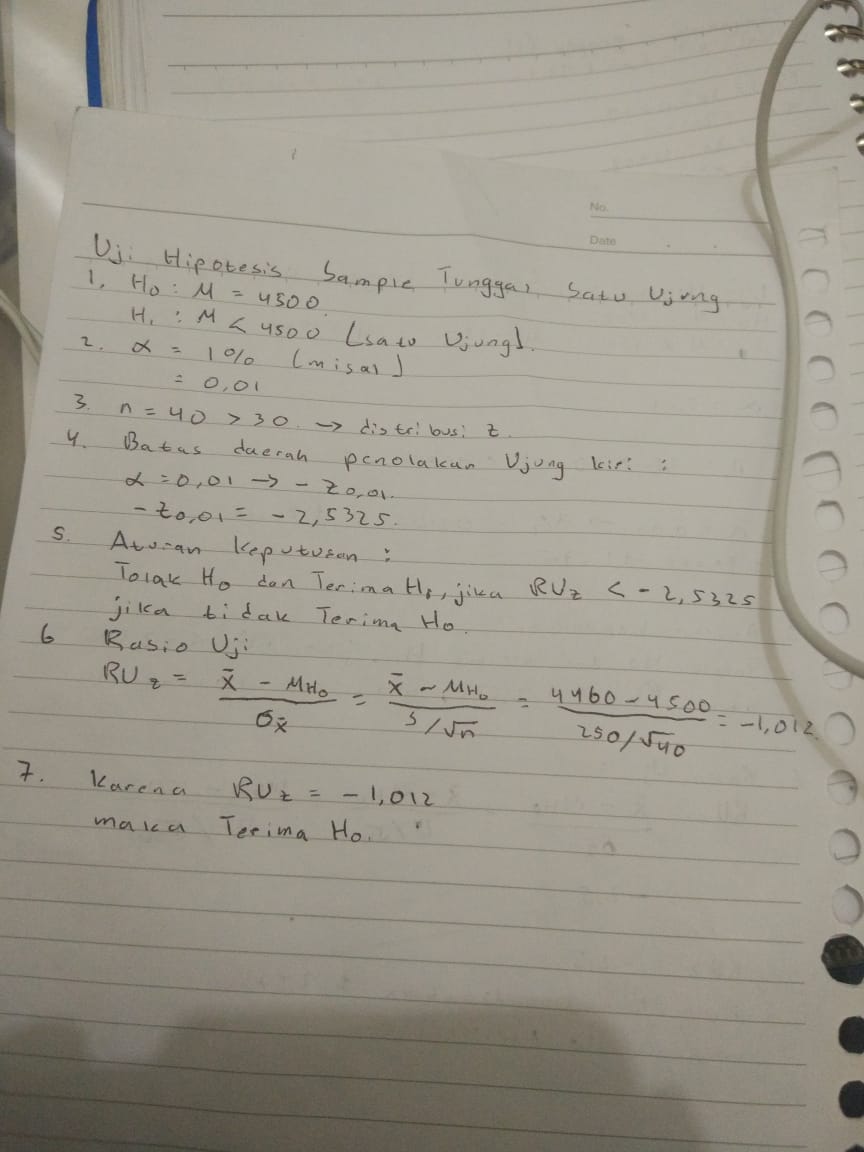 No.
Date
Uji Hipotesis Sample Tunggal Satu Ujung
1. Ho : M = 4500
H1 : M < 4500 (satu Ujung).
2. α = 1% (misal)
= 0,01
3. n = 40 > 30 → distribusi z.
4. Batas daerah penolakan Ujung kiri :
α = 0,01 → - Z0,01.
- Z0,01 = - 2,5325.
5. Aturan Keputusan :
Tolak Ho dan Terima H1, jika RUz < - 2,5325
jika tidak Terima Ho.
6 Rasio Uji
RUz = (x̄ - MHo) / σx̄ = (x̄ - MHo) / (s/√n) = (4460 - 4500) / (250/√40) = -1,012.
7. Karena RUz = - 1,012
maka Terima Ho.